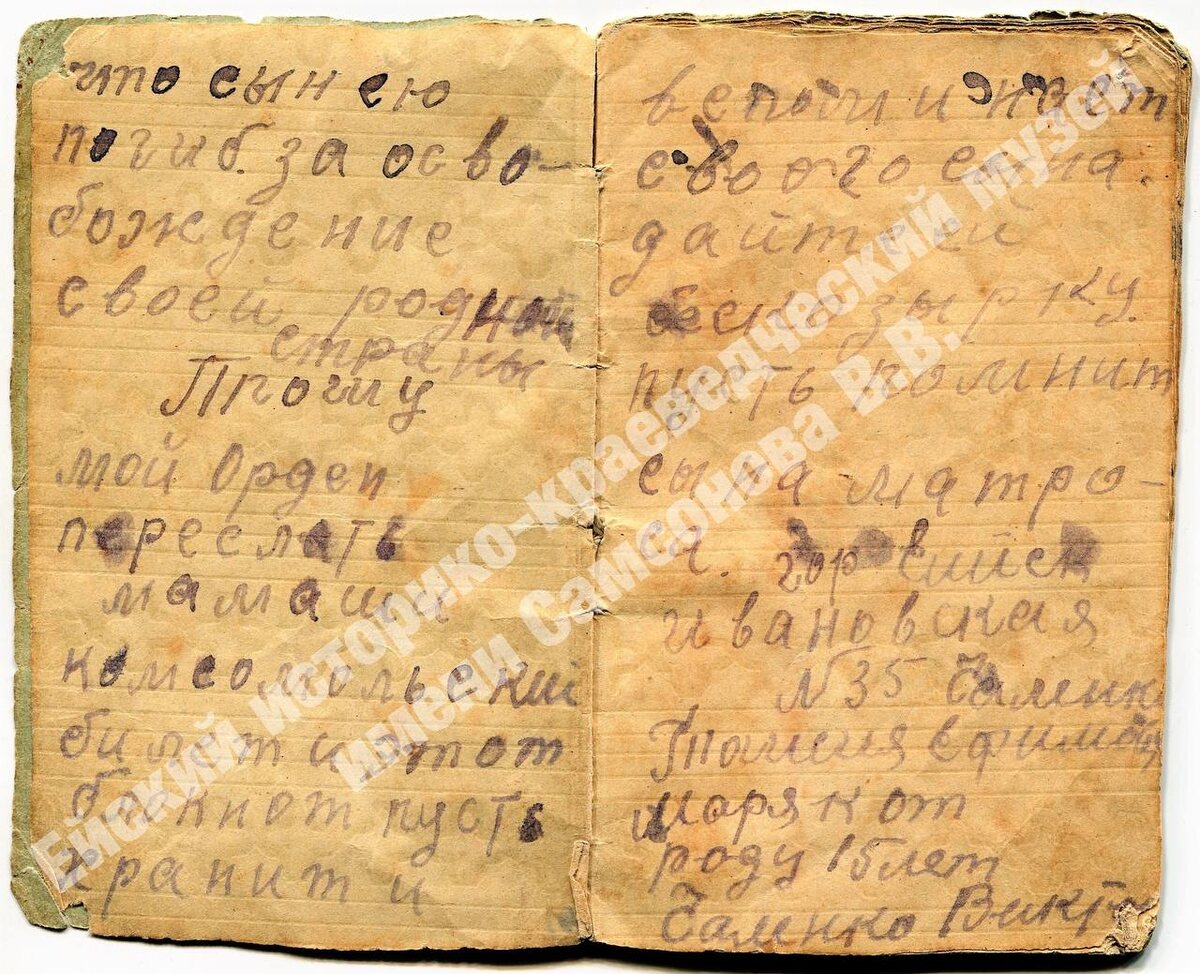 что сын ею
погиб.за осво-
бождение
своей родной
страны
Прошу
мой Орден
переслать
мамаши
комсомольский
билет и этот
блакнот пусть
хранит и
вспоминает
своего сына.
дайте ей
бескозырку.
пусть помнит
сына матро-
са. гор ейиск
ивановская
N 35 Чаленк
Таисия Ефимовна
моряк от
роду 15 лет
Чаленко Виктор
Ейский историко-краеведческий музей
имени Самсонова В.В.